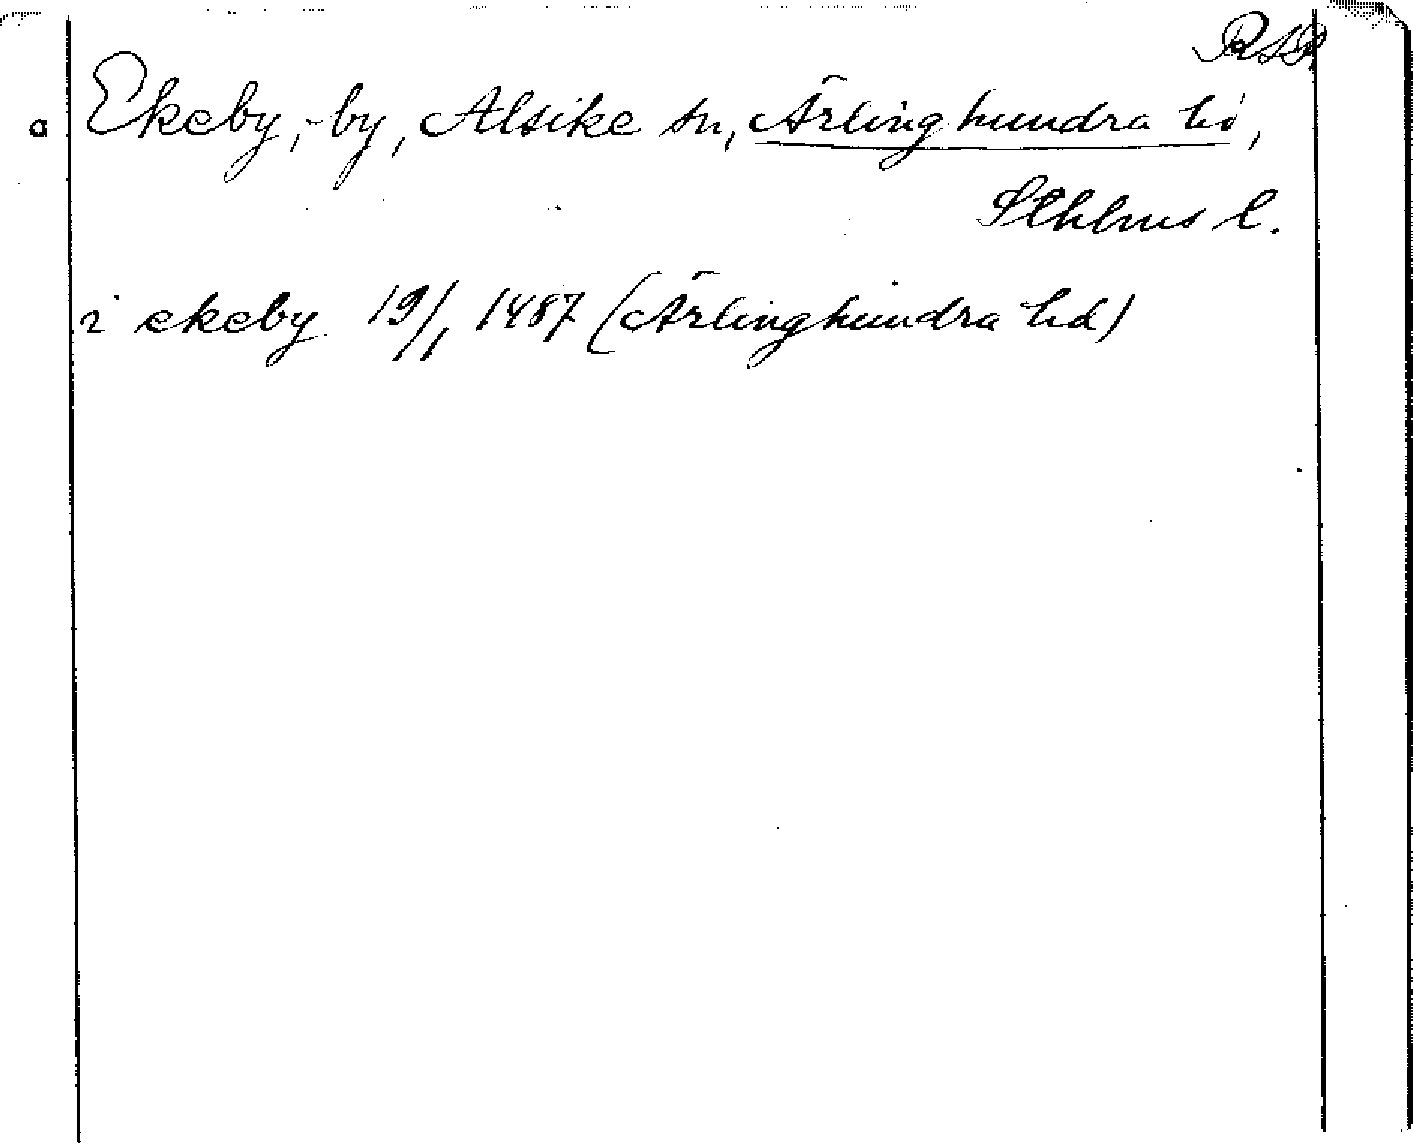 RAP
a Ekeby, -by, Alsike sn, Ärlinghundra hd,
Sthlms l.
i ekeby 19/1 1487 (Ärlinghundra hd)